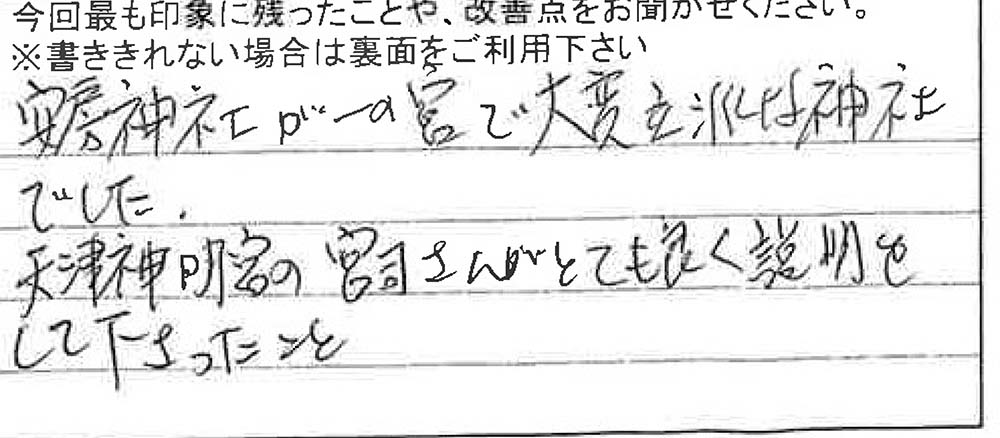 今回最も印象に残ったことや、改善点をお聞かせください。
※書ききれない場合は裏面をご利用下さい
安房神社が一の宮で大変立派な神社
でした.
天津神明宮の宮司さんがとても良く説明を
して下さったこと